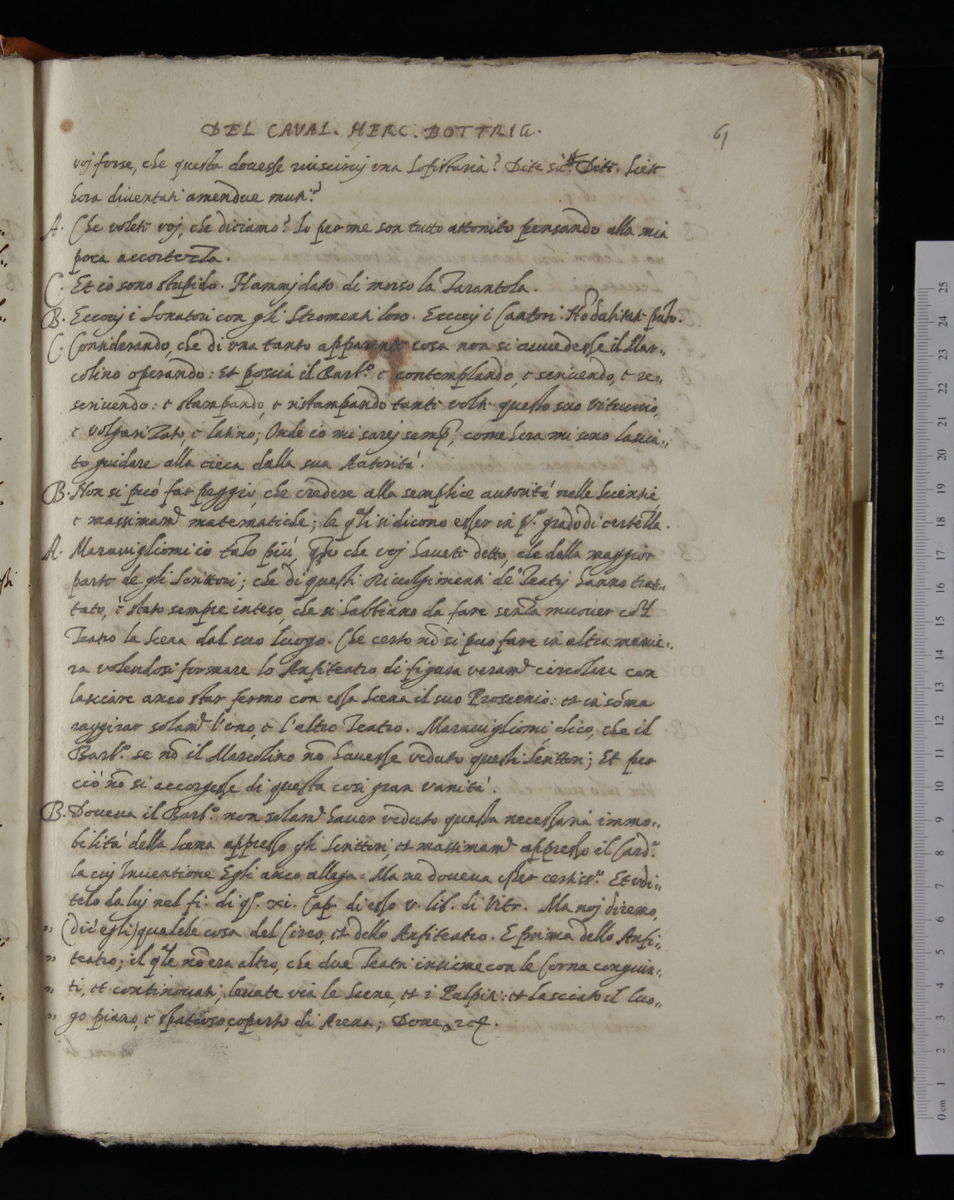 DEL CAVAL. HERC. BOTTRIG. 61
voj forse, che questa dovesse riuscirvj una Sofistaria? Dite sù. Dite. Siete
hora diventati amendue muti?
A. Che volete voj, che diciamo? Io per me son tutto attonito pensando alla mia
poca accortezza.
C. Et io sono stupido. Hammj dato di morso la Tarantola.
B. Eccovj i Sonatori con gli Stromenti loro. Eccovj i Cantori.
C. Considerando, che di una tanto apparente cosa non si avvedesse il Mar-
colino operando: Et poscia il Barb.º e contemplando, e scrivendo, e re-
scrivendo: e stampando, e ristampando tante volte questo suo Vitruvio,
e volgarizato, e latino; Onde io mi sarej semp., come hora mi sono lascia-
to guidare alla cieca dalla sua Autorità.
B. Non si può far peggio, che credere alla semplice autorità nelle Scientie
e massimam.e matematiche; le q.li si dicono esser in p.º grado di certezza.
A. Maravigliomi io tanto più, q.to che voj havete detto, che dalla maggior
parte de gli Scrittori; che di questi rivolgimenti de' Teatrj hanno trat-
tato, è stato sempre inteso, che si habbiano da fare senza muover col
Teatro la Scena dal suo luogo. Che certo nō si può fare in altra manie-
ra volendosi formare lo Anfiteatro di figura veram.e circolare con
lasciare anco star fermo con essa Scena il suo Proscenio: et in sōma
raggirar solam.e l'uno, e l'altro Teatro. Maravigliomi dico, che il
Barb.º se nō il Marcolino nō havesse veduto questi Scrittori; Et per
ciò nō si accorgesse di questa così gran vanità.
B. Doveva il Barb.º non solam.e haver veduto questa necessaria immo-
bilità della Scena appresso gli Scrittori, et massimam.e appresso il Card.º
la cuj Inventione Egli anco allega: Ma ne doveva esser certiss.º Et udi-
telo da luj nel fi. di q.º xi. Cap. di esso v. lib. di Vitr. Ma noj diremo,
" (dic'egli) qualche cosa del Circo, et dello Anfiteatro. E prima dello Anfi-
" teatro; il q.le nō era altro, che due Teatri insieme con le Corna congiun-
" ti, et continovati, levate via le Scene, et i Pulpiti: et lasciato il luo-
" go piano, e spatioso coperto di Arena; Dove